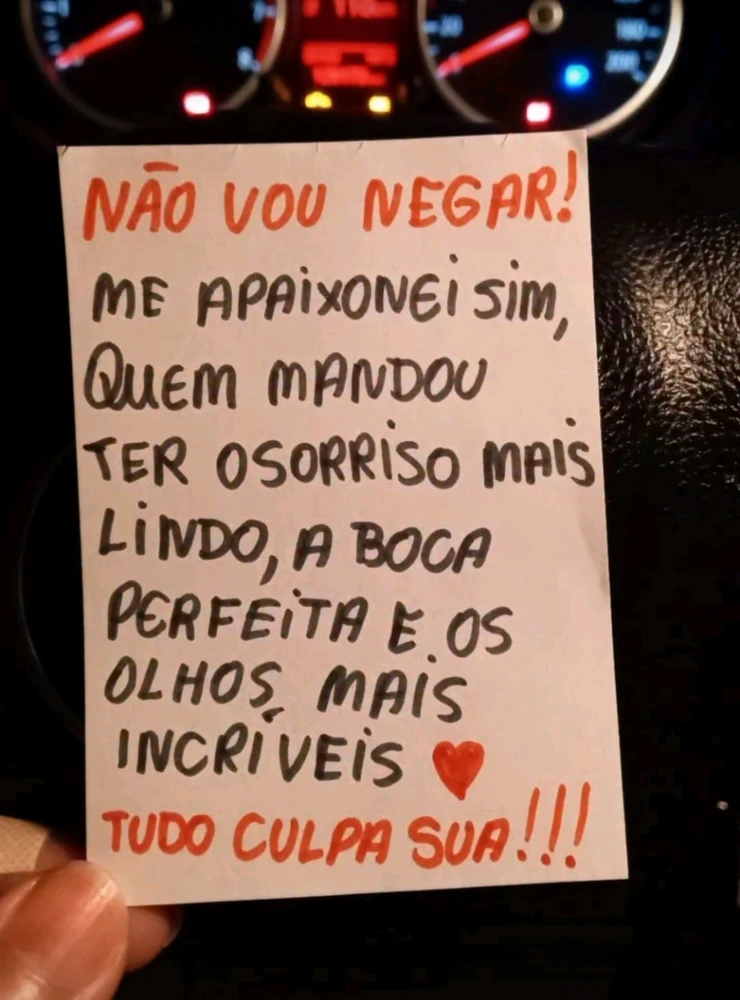 NÃO VOU NEGAR!
ME APAIXONEI SIM,
QUEM MANDOU
TER OSORRISO MAIS
LINDO, A BOCA
PERFEITA E OS
OLHOS MAIS
INCRÍVEIS ♥
TUDO CULPA SUA!!!